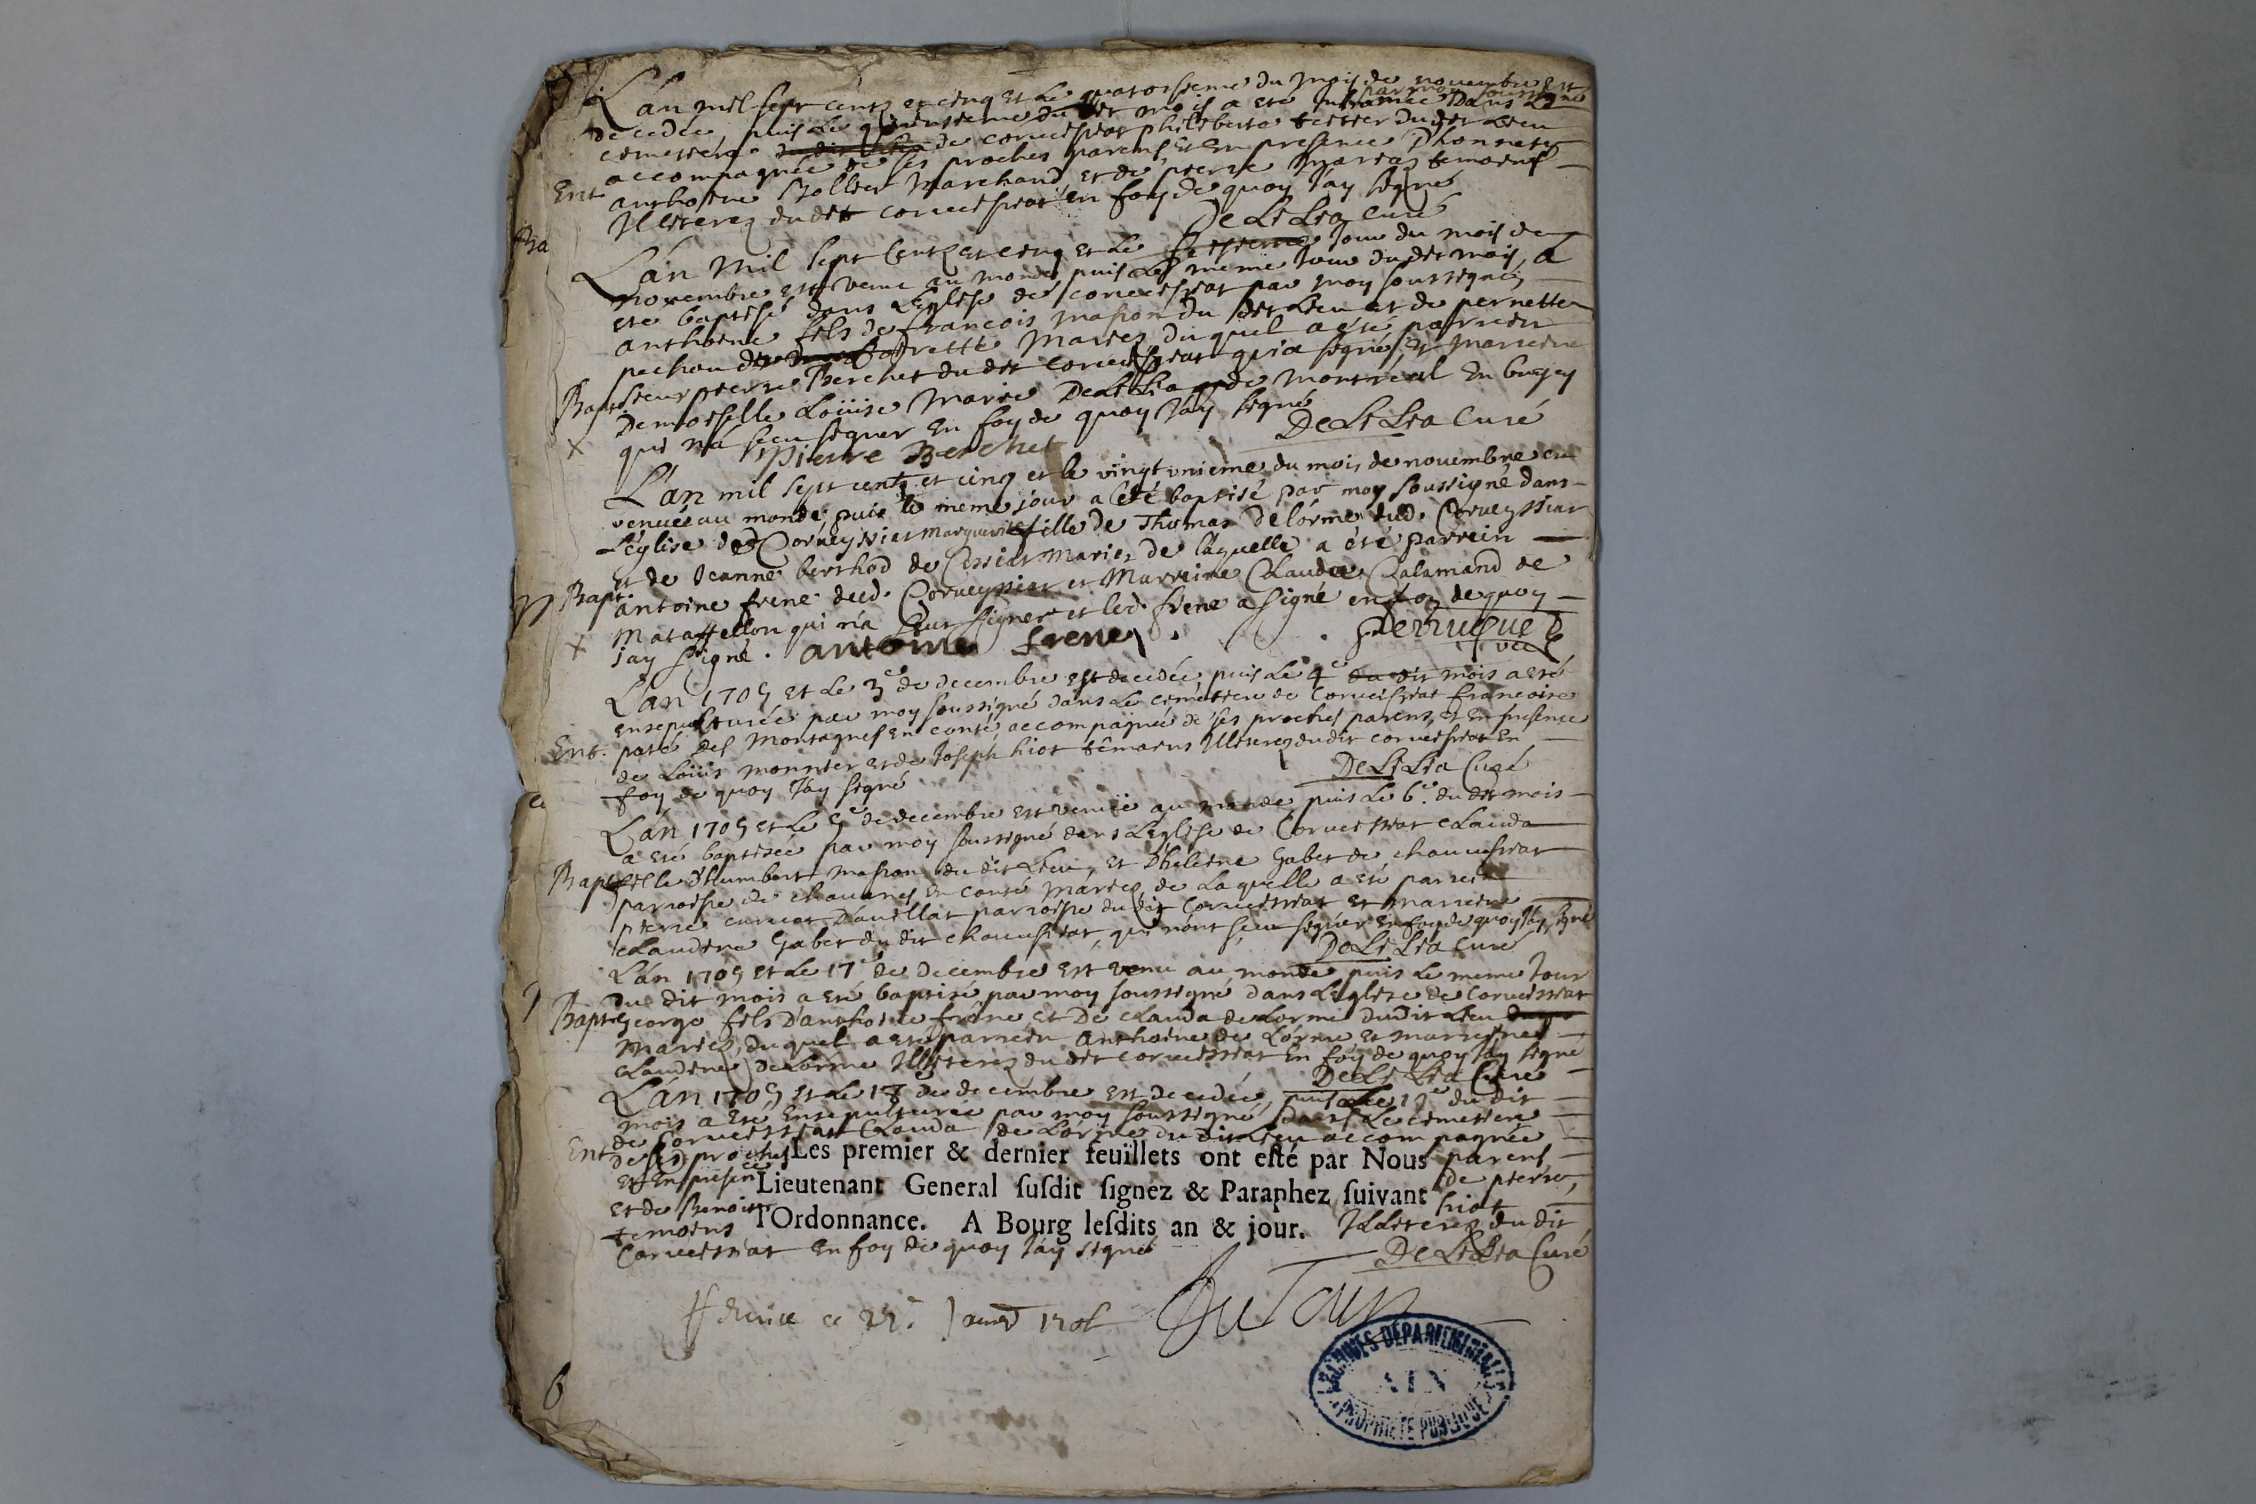 L'an mil sept cents et cinq et le quatorsieme du mois de novembre est
decedée, puis le quinsieme du dit mois a eté inhumée par moy soussigné dans le
cimetiere de corveissiat philiberte tessier du dit lieu
accompagnée de ses proches parens et en presence d'honnete
Ent anthoine Rollier marchand et de pierre mariez temoins
Illiterez du dit corveissiat en foy de quoy j'ay signé
De Li Lia curé
Ba
L'an mil sept cents et cinq et le seisieme jour du mois de
novembre est venu au monde puis le meme jour du dit mois, a
eté baptisé dans l'eglise de corveissiat par moy soussigné
anthoine fils de francois masson du dit lieu et de pernette
pechou mariez duquel a eté parrein
Bapt sieur pierre Berchet du dit corveissiat qui a signé, et marreine
Demoiselle Loüise Marie De Li Lia de Montreal en bugey
X qui n'a sceu signer en foy de quoy j'ay signé
De Li Lia Curé
Pierre Berchet
L'an mil sept cents et cinq et le vingt unieme du mois de novembre est
venuë au monde puis le meme jour a eté baptisé par moy soussigné dans
L'église dud Corveyssiat marguerite fille de Thomas Delorme dud. Corveyssiat
et de Jeanne berthod de Cessiat Mariez de laquelle a été parrein
Bapt antoine frene dud. Corveyssiat et Marreine Claudae Calamand de
X Mataffellon qui n'a sceu signer et led. frene a signé en foy de quoy
j'ay signé. antoine frene perruquet
vic
L'an 1705 et le 3e de decembre est decedée, puis le 4e du dit mois a eté
ensepulturée par moy soussigné dans le cimetiere de corveissiat francoise
Ent. paté des Montagnes en conté accompagnée de ses proches parens, et en presence
de Loüis monnier et de Joseph hiot têmoins Illiterez du dit corveissiat en
foy de quoy j'ay signé De Li Lia Curé
L'an 1705 et le 5e de decembre est venuë au monde puis le 6e. du dit mois
a eté baptisée par moy soussigné dans l'Eglise de Corveissiat Clauda
Bapt fille d'humbert masson du dit lieu, et d'heleine Gabet de chaveissiat
parroisse de chavanes en conté mariez, de laquelle a eté parrein
pierre curvat d'avillat parroisse du dit Corveissiat et marreine
Claudine Gabet du dit chaveissiat, qui n'ont sceu signer en foy de quoy j'ay signé
De Li Lia Curé
L'an 1705 et le 17e de decembre est venu au monde puis le meme jour
du dit mois a eté baptisé par moy soussigné dans l'eglise de corveissiat
Bapt George fils d'anthoine frêne et de Clauda de Lorme du dit lieu
Mariez, du quel a eté parrein Anthoine de Lorme et marreine
Claudine de Lorme Illiterez du dit corveissiat en foy de quoy j'ay signé
De Li Lia Curé
L'an 1705 et le 18e de decembre est decedée, puis le 19e du dit
mois a eté ensepulturée par moy soussigné dans le cimetiere
de Corveissiat Clauda de Lorme du dit lieu accompagnée
Ent de ses proches parens
Les premier & dernier feüillets ont esté par Nous
et en presence de pierre
Lieutenant General susdit signez & Paraphez suivant
et de Benoit hiot
l'Ordonnance. A Bourg lesdits an & jour.
temoins Illiterez du dit
Corveissiat en foy de quoy j'ay signé
De Li Lia Curé
6
ARCHIVES DÉPARTEMENTALES
AIN
PROPRIÉTÉ PUBLIQUE